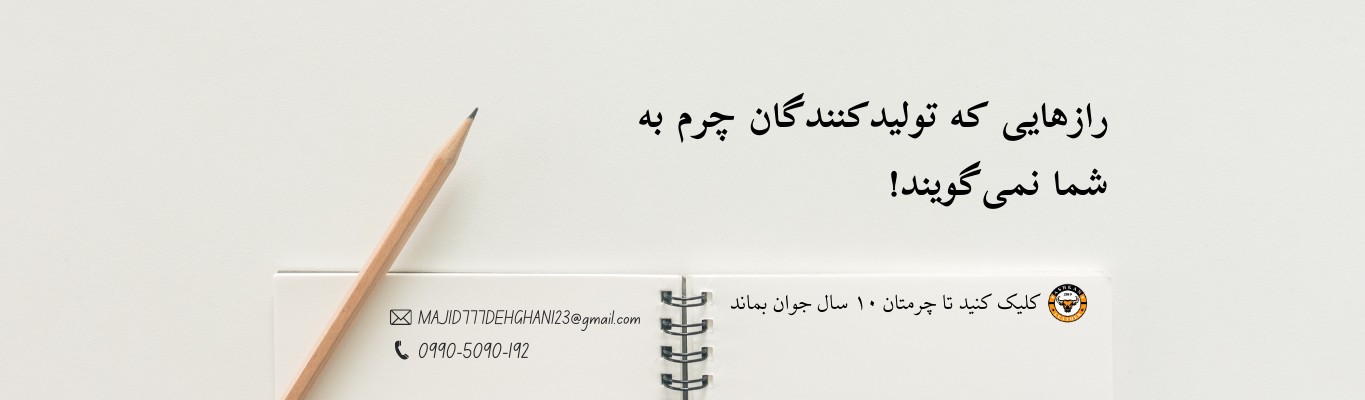 رازهایی که تولیدکنندگان چرم به
شما نمی‌گویند!
کلیک کنید تا چرمتان ۱۰ سال جوان بماند
MAJID777DEHGHANI123@gmail.com
0990-5090-192